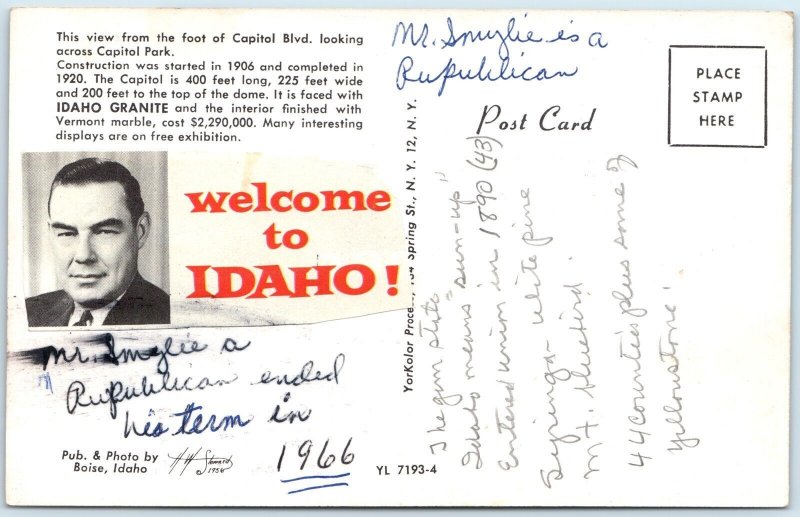 This view from the foot of Capitol Blvd. looking
across Capitol Park.
Construction was started in 1906 and completed in
1920. The Capitol is 400 feet long, 225 feet wide
and 200 feet to the top of the dome. It is faced with
IDAHO GRANITE and the interior finished with
Vermont marble, cost $2,290,000. Many interesting
displays are on free exhibition.
welcome
to
IDAHO!
Mr. Smylie a
Rupublican ended
his term in
1966
Pub. & Photo by
Boise, Idaho
1956
YL 7193-4
YorKolor Proce Spring St., N. Y. 12, N. Y.
Mr. Smylie is a
Rupublican
Post Card
PLACE
STAMP
HERE
The gem state
Idaho means "sun-up"
Entered union in 1890 (43)
Syringa - white pine
mt. bluebird
44 counties plus some of
yellowstone